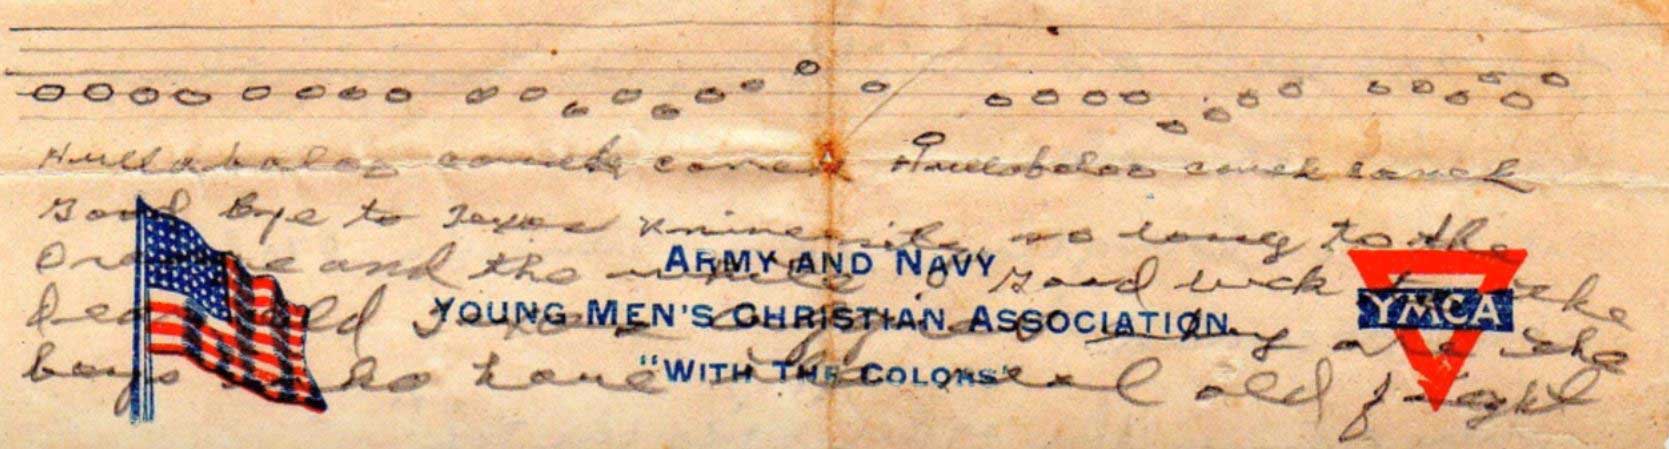 Hullabaloo caneck canec Hullabaloo caneck caneck
Good Bye to Texas so long to the
Orange and the white Good luck to the
ARMY AND NAVY
YOUNG MEN'S CHRISTIAN ASSOCIATION
"WITH THE COLORS"
YMCA
Dear old Texas they are the
boys who have the real old fight